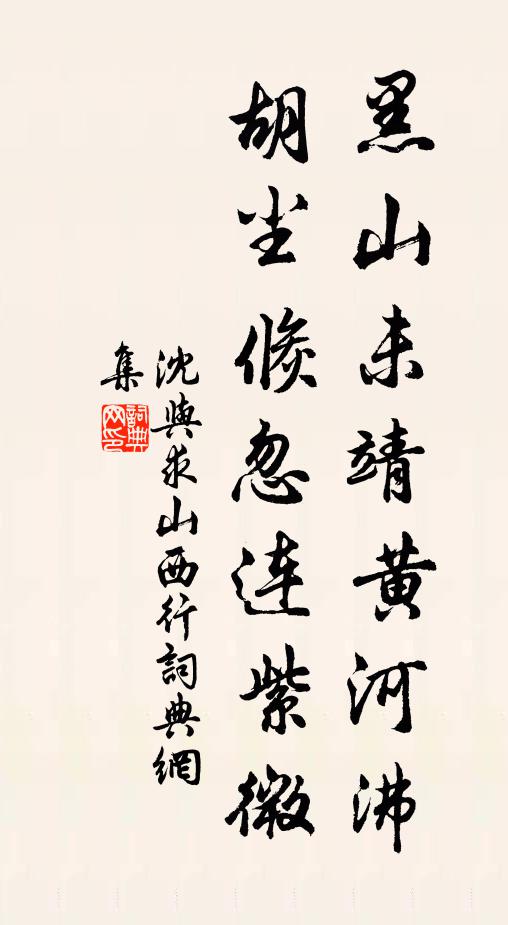 黑山未靖黄河沸
胡尘倏忽连紫微
沈與求山西行詞典網
集
詞典
网印